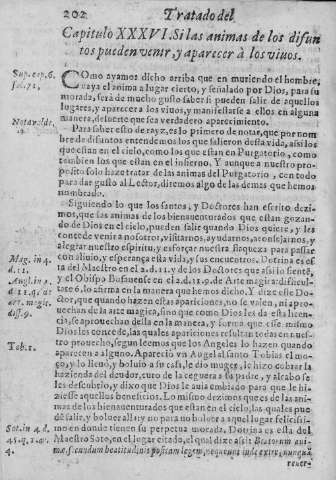 202 Tratado del
Capitulo XXXVI. Si las animas de los difun
tos pueden venir, y aparecer à los viuos.
Sup. cap. 6.
fol. 72.
COmo ayamos dicho arriba que en muriendo el hombre,
vaya el anima a lugar cierto, y señalado por Dios, para su
morada, serà de mucho gusto saber si pueden salir de aquellos
lugares, y aparecer a los viuos, y manifestarse a ellos en alguna
manera, de suerte que sea verdadero aparecimiento.
Para saber esto de rayz, es lo primero de notar, que por nom
bre de difuntos entendemos los que salieron desta vida, assi los
que estan en el cielo, como los que estan en Purgatorio, como
tambien los que estan en el infierno. Y aunque a nuestro pro
posito solo haze tratar de las animas del Purgatorio, con todo
para dar gusto al Lector, diremos algo de las demas que hemos
nombrado.
Siguiendo lo que los santos, y Doctores han escrito dezi
mos, que las animas de los bienauenturados que estan gozan-
do de Dios en el cielo, pueden salir quando Dios quiere, y les
conuiene venir a nosotros, visitarnos, ayudarnos, aconsejarnos, y
alegrar nuestro espiritu, y esforçar nuestra flaqueza para passar
con aliuio, y esperança esta vida, y sus encuentros. Dotrina es es
Mag. in 4.
d. 11.
ta del Maestro en el 2. d. 11. y de los Doctores que assi lo siente,
y el Obispo en el 2. d. 19. de Arte magica dificult
tores 6. lo afirma en la manera que hemos dicho. Y dize este Do-
ctor, que quando hazen estas apariciones, no se valen, ni apro-
art. magic.
diff. 9.
uechan de la arte magica, sino que como Dios les da esta licen
cia, se aprouechan della en la manera, y forma que esse mismo
Dios les concede, las quales apariciones resultan todas en nues-
tro prouecho, segun leemos que los Angeles lo hazen quando
Tob. 1.
aparecen a alguno. Apareciò vn Angel al santo Tobias el mo-
ço, y lo lleuò, y boluio a su casa, le dio muger, le hizo cobrar la
hazienda del deudor, curo de la ceguera a su padre, y al cabo se
les descubrio, y dixo que Dios le auia embiado para que le hi-
ziesse aquellos beneficios. Lo mismo dezimos que es de las ani
mas de los bienauenturados que estan en el cielo, las quales pue
den salir, y boluer alla y no para no boluer a aquel lugar felicissi-
Sot. in 4. d.
45. q. 1. ar.
4.
mo en donde tienen su perpetua morada. Dotrina es esta del
Maestro Soto, en el lugar citado, el qual dize assi: Beatorum ani-
mæ, secundum beatitudinis positam legem, nequeunt inde exire, nunquã
reuer-